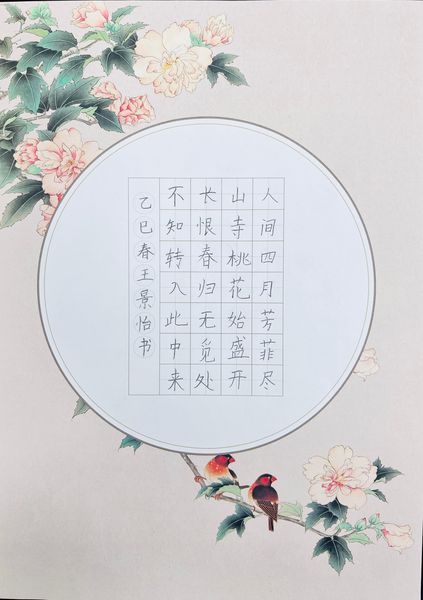 人间四月芳菲尽
山寺桃花始盛开
长恨春归无觅处
不知转入此中来
乙巳春王景怡书